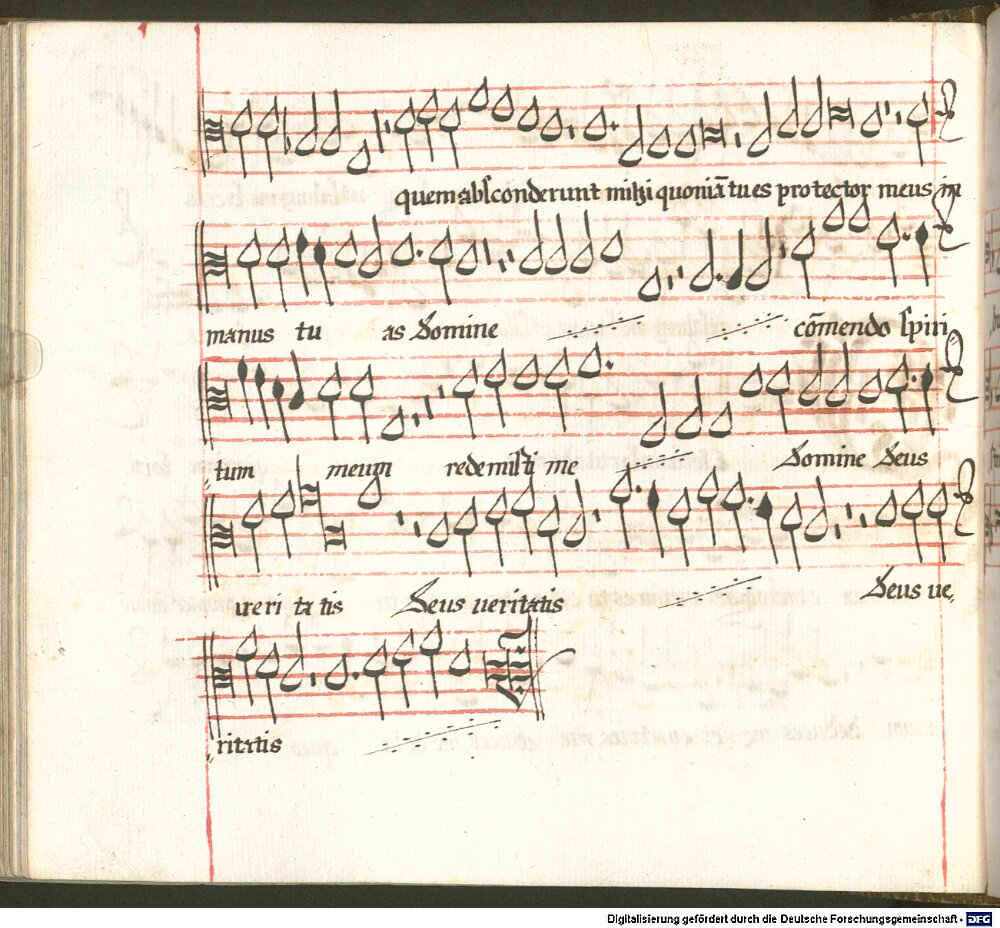 quem absconderunt mihi quoniā tu es protector meus in
manus tu as Domine cōmendo spiri
tum meum redemisti me Domine Deus
veri ta tis Deus veritatis Deus ve,
ritatis
Digitalisierung gefördert durch die Deutsche Forschungsgemeinschaft - DFG